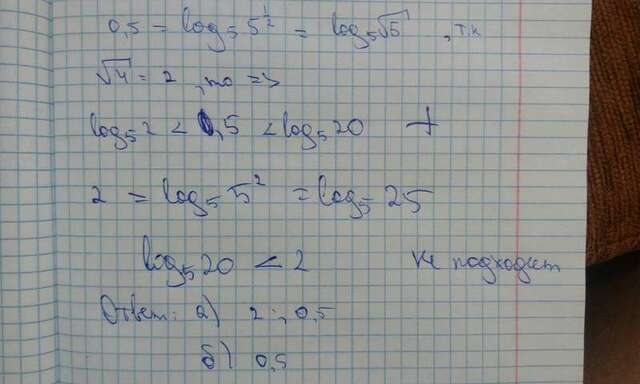 0,5 = log₅ 5^½ = log₅ √5 , т.к
√4 = 2 , то =>
log₅ 2 < 0,5 < log₅ 20 +
2 = log₅ 5² = log₅ 25
log₅ 20 < 2 не подходит
Ответ: а) 2 ; 0,5
б) 0,5